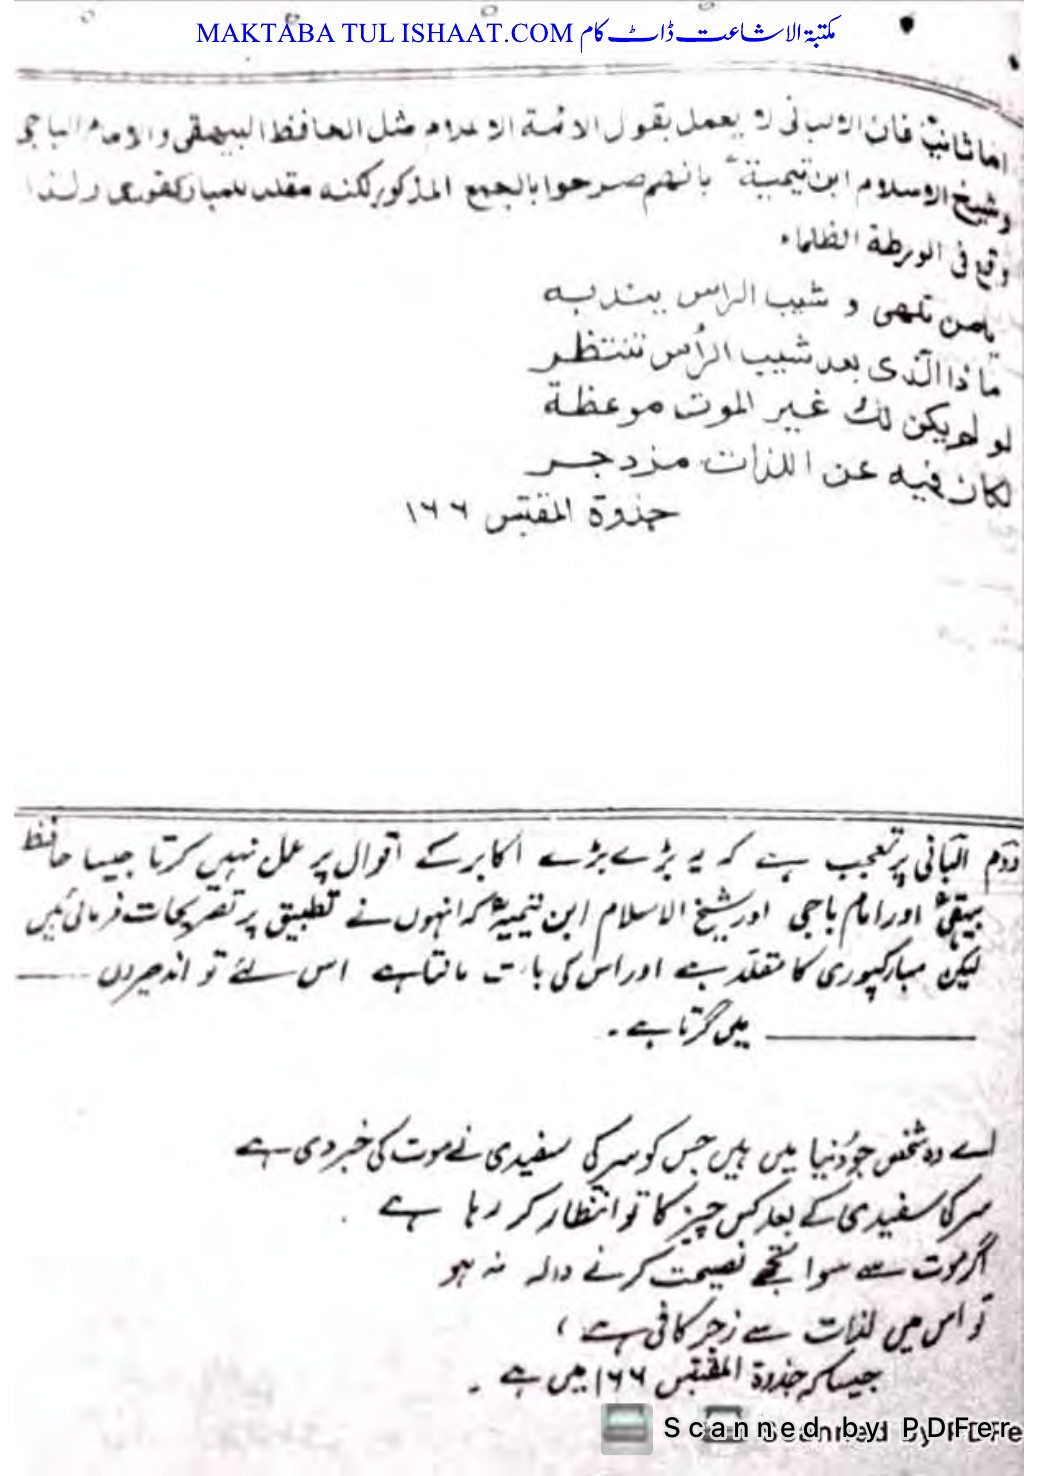 MAKTABA TUL ISHAAT.COM مکتبۃ الاشاعت ڈاٹ کام
اما ثانیا فان الالبانی لا یعمل بقول الائمة الاعلام مثل الحافظ البیهقی والامام الباجی
وشیخ الاسلام ابن تیمیة بانهم صرحوا بالجمع المذکور لکنه مقلد للمبارکفوری ولذا
وقع فی الورطة الظلماء
یا من تلهی و شیب الراس یندبه
ما ذا الّذی بعد شیب الرأس تنتظر
لو لم یکن لک غیر الموت موعظة
لکان فیه عن اللذات مزدجر
جذوة المقتبس ۱۶۶
دوّم البانی پر تعجب ہے کہ یہ بڑے بڑے اکابر کے اقوال پر عمل نہیں کرتا جیسا حافظ
بیہقیؒ اور امام باجی اور شیخ الاسلام ابن تیمیہؒ کہ انہوں نے تطبیق پر تصریحات فرمائی ہیں
لیکن مبارکپوری کا مقلد ہے اور اس کی بات مانتا ہے اس لئے تو اندھیروں
میں گرتا ہے ۔
اے وہ شخص جو دُنیا میں ہیں جس کو سر کی سفیدی نے موت کی خبر دی ہے
سر کی سفیدی کے بعد کس چیز کا تو انتظار کر رہا ہے ۔
اگر موت سے سوا تجھے نصیحت کرنے والا نہ ہو
تو اس میں لذات سے زجر کافی ہے ،
جیسا کہ جذوة المقتبس ۱۶۶ میں ہے ۔
Scanned by PDFer